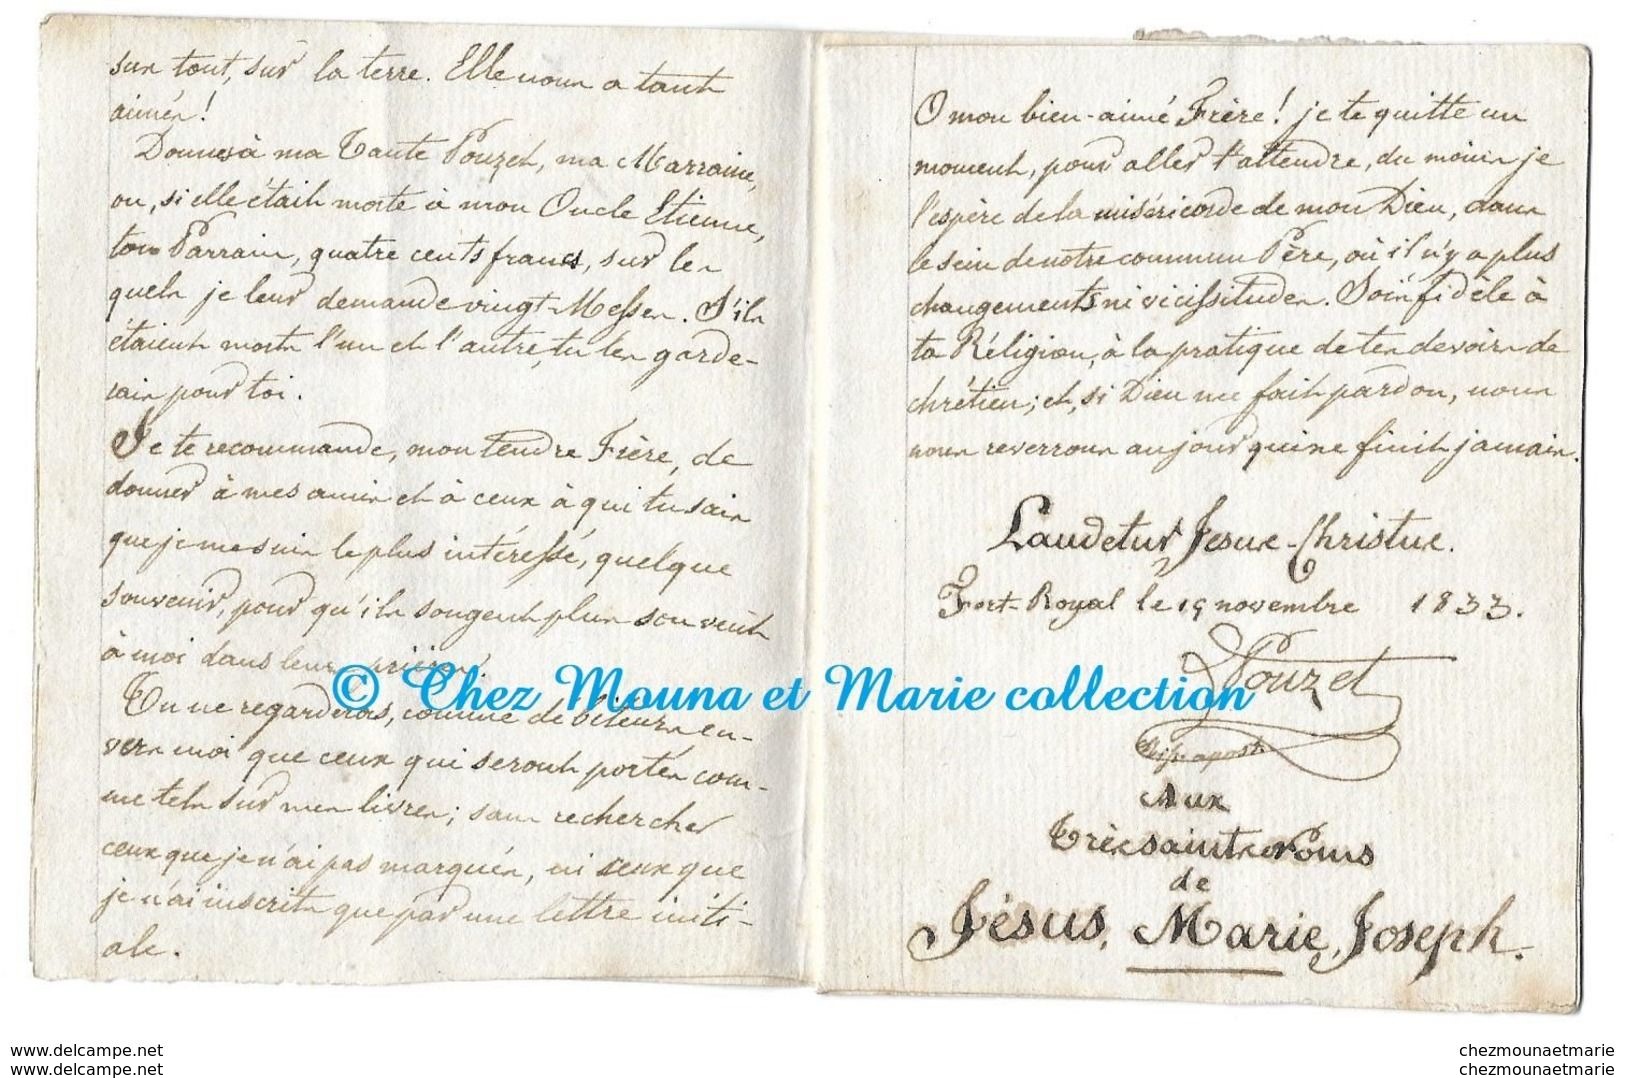 sur tout, sur la terre. Elle nous a tant
aimés!
Donnes à ma Tante Pouzet, ma Marraine,
ou, si elle était morte à mon Oncle Etienne,
ton Parrain, quatre cents francs, sur les
quels je leur demande vingt-Messes. S'ils
étaient morts l'un et l'autre, tu les garde-
rais pour toi.
Je te recommande, mon tendre Frère, de
donner à mes amis et à ceux à qui tu sais
que je me suis le plus intéressé, quelque
souvenir, pour qu'ils songent plus souvent
à moi dans leurs prières.
Tu ne regarderas, comme débiteurs en-
vers moi que ceux qui seront portés com-
me tels sur mes livres; sans rechercher
ceux que je n'ai pas marqués, ni ceux que
je n'ai inscrits que par une lettre initi-
ale.
O mon bien-aimé Frère! je te quitte un
moment, pour aller t'attendre, du moins je
l'espère de la miséricorde de mon Dieu, dans
le sein de notre commun Père, où il n'y a plus
changements ni vicissitudes. Sois fidèle à
ta Réligion, à la pratique de tes devoirs de
chrétien; et, si Dieu me fait pardon, nous
nous reverrons au jour qui ne finit jamais.
Laudetur Jesus-Christus.
Fort-Royal le 19 novembre 1833.
Pouzet
Aux
Très saints Noms
de
Jésus, Marie, Joseph.
© Chez Mouna et Marie collection
delcampe.net
delcampe.net
chezmounaetmarie
chezmounaetmarie